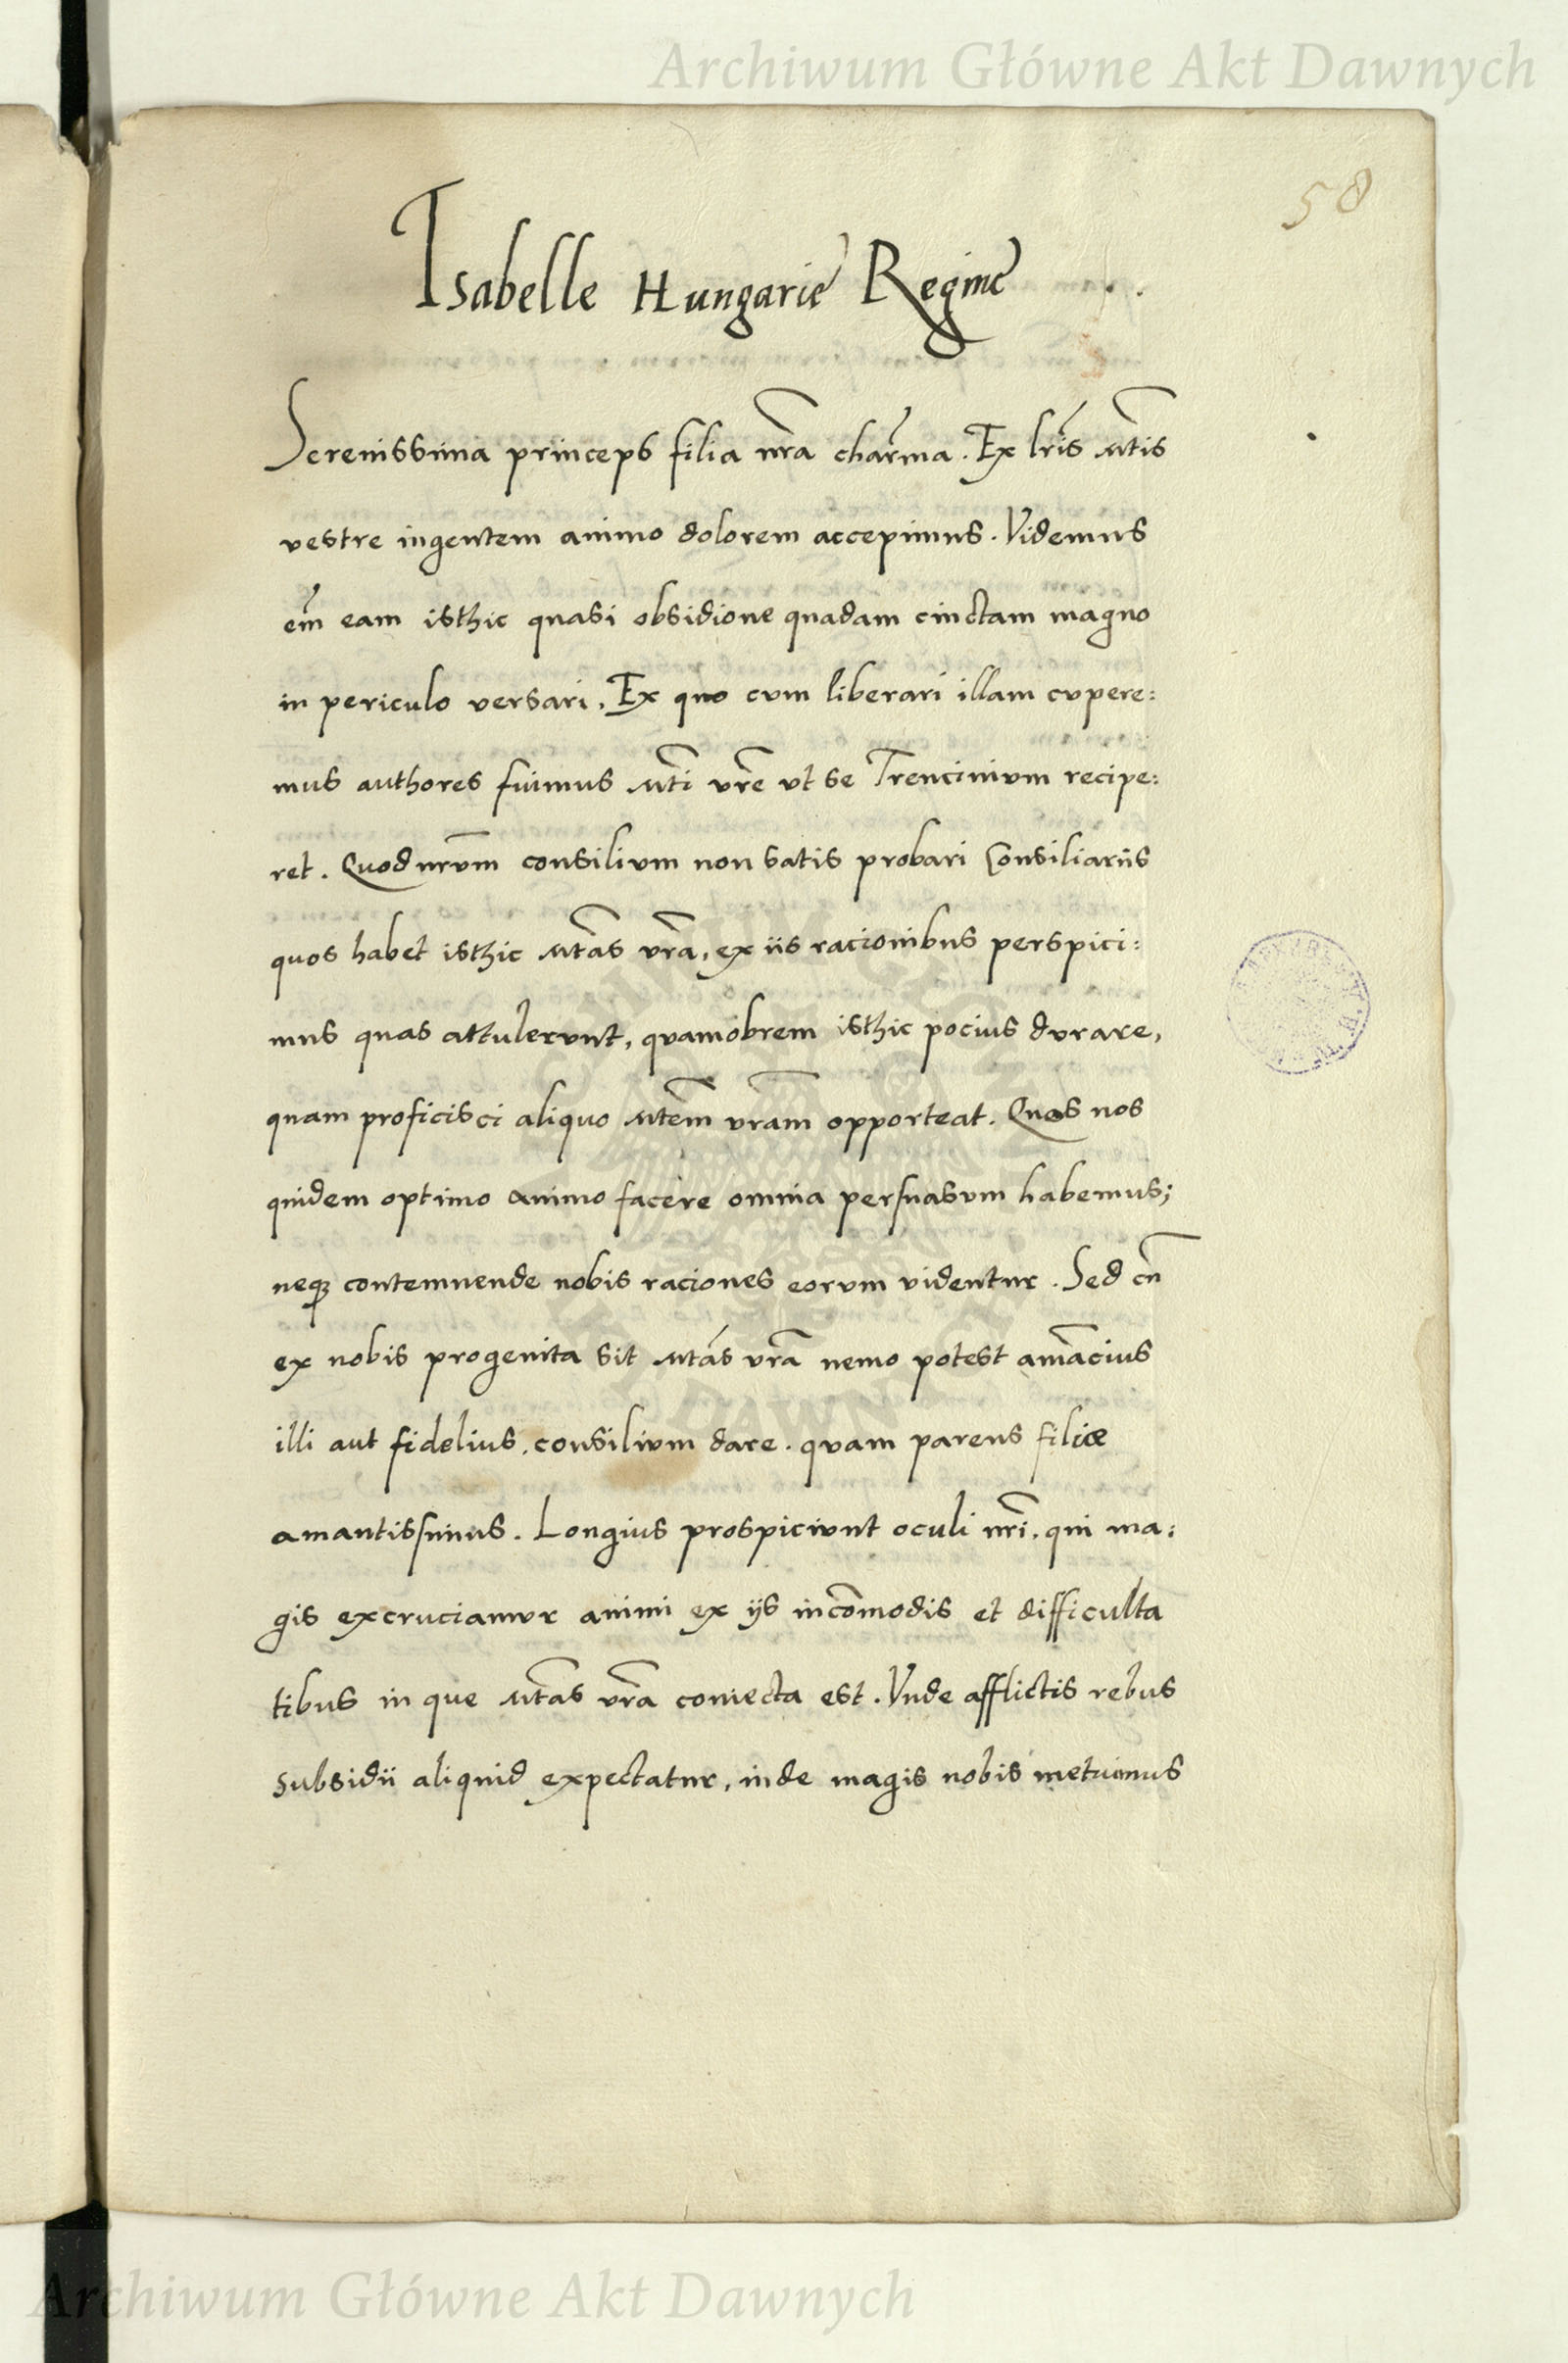 Archiwum Główne Akt Dawnych
58
Isabelle Hungarie Regine
Serenissima princeps filia nr̃a char̃ma. Ex lr̃is Mt̃is
vestre ingentem animo dolorem accepimus. Videmus
em̃ eam isthic quasi obsidione quadam cinctam magno
in periculo versari. Ex quo cum liberari illam cupere:
mus authores fuimus Mt̃i vr̃e ut se Trencinium recipe:
ret. Quod nr̃um consilium non satis probari Consiliariis
quos habet isthic Mt̃as vr̃a, ex iis racionibus perspici:
mus quas attulerunt, quamobrem isthic pocius durare,
quam proficisci aliquo Mt̃em vr̃am opporteat. Quos nos
quidem optimo animo facere omnia persuasum habemus;
neqꝫ contemnende nobis raciones eorum videntur. Sed cũ
ex nobis progenita sit Mt̃as vr̃a nemo potest amãcius
illi aut fidelius, consilium dare. quam parens filiæ
amantissimus. Longius prospiciunt oculi nr̃i, qui ma:
gis excruciamur animi ex ijs incõmodis et difficulta
tibus in que Mt̃as vr̃a coniecta est. Unde afflictis rebus
subsidii aliquid expectatur, inde magis nobis metuimus
Archiwum Główne Akt Dawnych